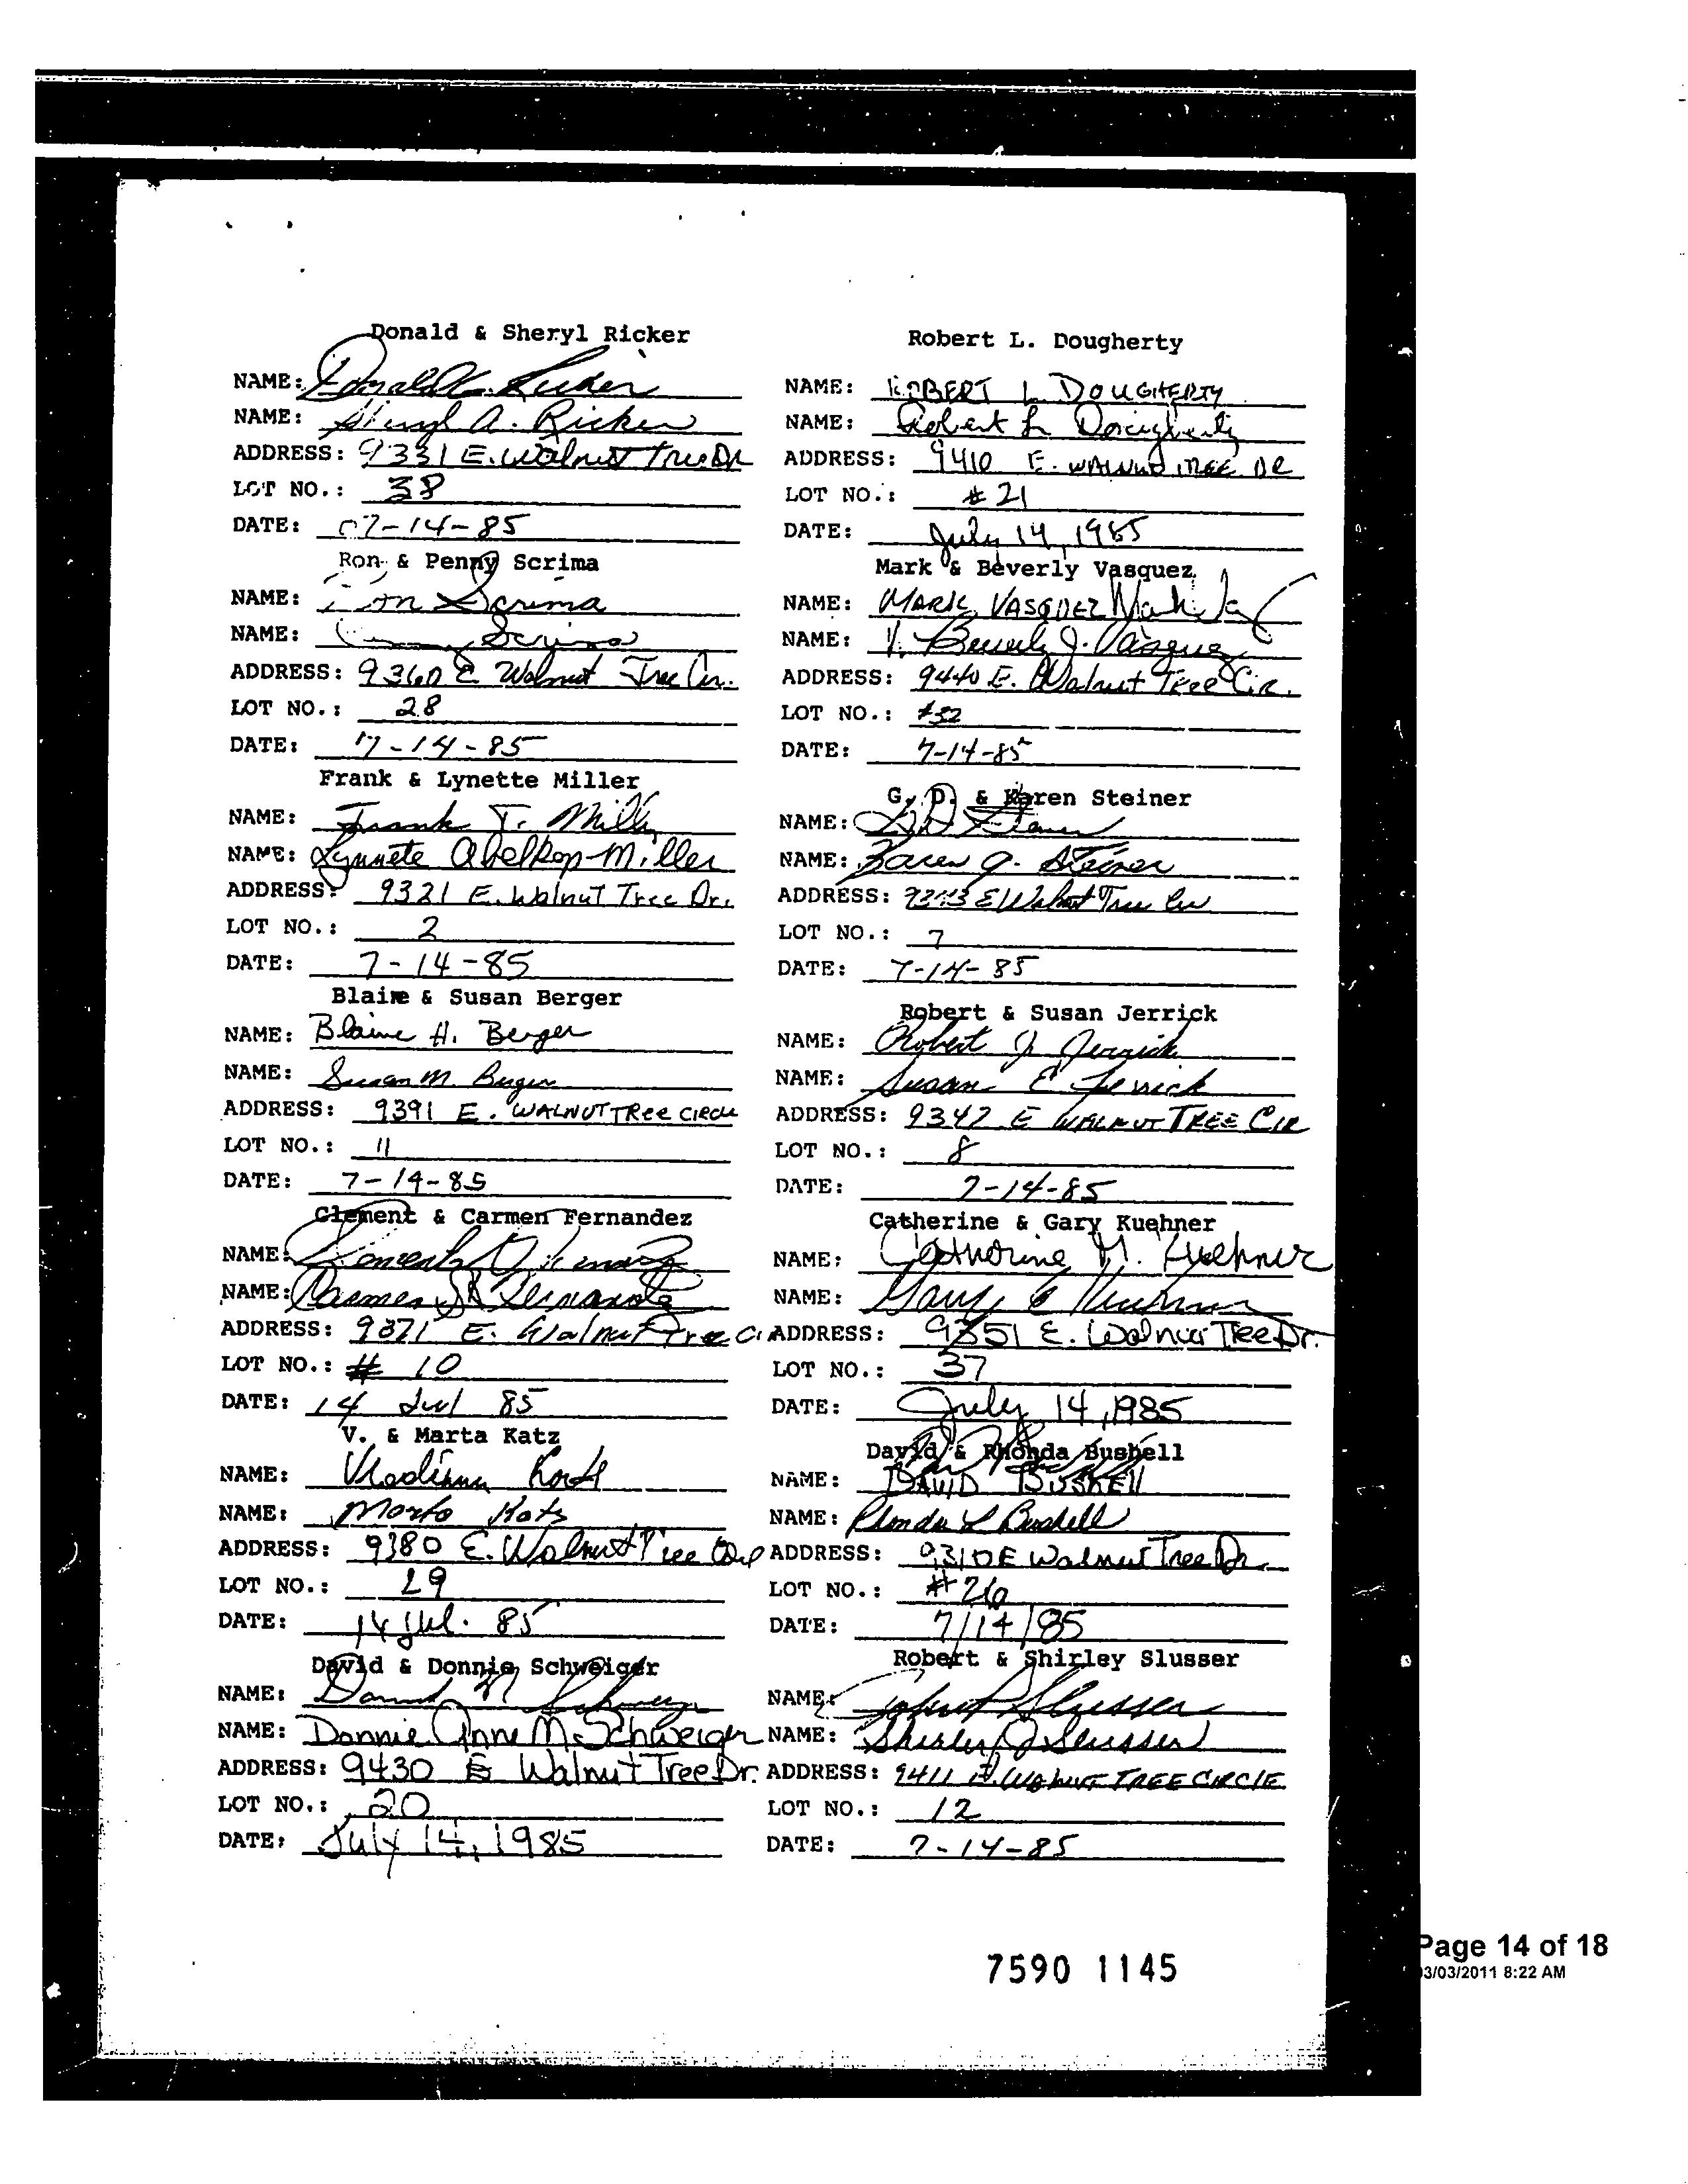 Donald & Sheryl Ricker
NAME: Donald C. Ricker
NAME: Sheryl A. Ricker
ADDRESS: 9331 E. Walnut Tree Dr
LOT NO.: 38
DATE: 07-14-85
Ron & Penny Scrima
NAME: Ron Scrima
NAME: Scrima
ADDRESS: 9360 E Walnut Tree Cir.
LOT NO.: 28
DATE: 7-14-85
Frank & Lynette Miller
NAME: Frank T. Miller
NAME: Lynnete Abelkop-Miller
ADDRESS: 9321 E. Walnut Tree Dr.
LOT NO.: 2
DATE: 7-14-85
Blaine & Susan Berger
NAME: Blaine H. Berger
NAME: Susan M. Berger
ADDRESS: 9391 E. WALNUT TRee CIRCLE
LOT NO.: 11
DATE: 7-14-85
Clement & Carmen Fernandez
NAME:
NAME: Carmen Fernandez
ADDRESS: 9371 E. Walnut Tree Ci
LOT NO.: # 10
DATE: 14 Jul 85
V. & Marta Katz
NAME: Katz
NAME: Marta Katz
ADDRESS: 9380 E. Walnut Tree
LOT NO.: 29
DATE: 14 Jul. 85
David & Donnie Schweiger
NAME: David M Schweiger
NAME: Donnie Anne M. Schweiger
ADDRESS: 9430 E Walnut Tree Dr.
LOT NO.: 20
DATE: July 14, 1985
Robert L. Dougherty
NAME: ROBERT L DOUGHERTY
NAME: Robert L Dougherty
ADDRESS: 9410 E. WALNUT TREE DR
LOT NO.: # 21
DATE: July 14, 1985
Mark & Beverly Vasquez
NAME: MARK VASQUEZ
NAME: Beverly J. Vasquez
ADDRESS: 9440 E. Walnut Tree Cir.
LOT NO.: #32
DATE: 7-14-85
G. D. & Karen Steiner
NAME: G D Steiner
NAME: Karen J. Steiner
ADDRESS: E Walnut Tree Cir
LOT NO.: 7
DATE: 7-14-85
Robert & Susan Jerrick
NAME: Robert J Jerrick
NAME: Susan E Jerrick
ADDRESS: 9342 E WALNUT TREE CIR
LOT NO.: 8
DATE: 7-14-85
Catherine & Gary Kuehner
NAME: Catherine M. Kuehner
NAME: Gary C Kuehner
ADDRESS: 9351 E. Walnut Tree Dr.
LOT NO.: 37
DATE: July 14, 1985
David & Rhonda Bushell
NAME: DAVID BUSHEll
NAME: Rhonda L Bushell
ADDRESS: 9310 E Walnut Tree Dr
LOT NO.: #26
DATE: 7/14/85
Robert & Shirley Slusser
NAME: Robert Slusser
NAME: Shirley J Slusser
ADDRESS: 9411 E. WALNUT TREE CIRCLE
LOT NO.: 12
DATE: 7-14-85
7590 1145
Page 14 of 18
3/03/2011 8:22 AM